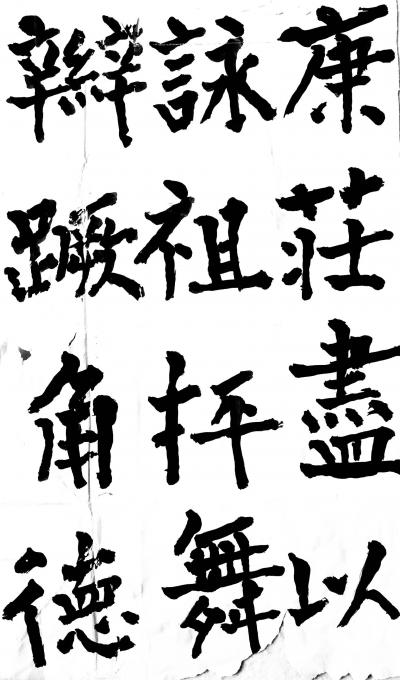 康莊盡以
詠祖抨舞
辮蹶角德